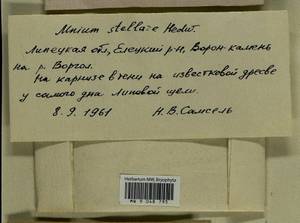 Mnium stellare Hedw.
Липецкая обл, Елецкий р-н, Ворон-камень
на р. Воргол.
На карнизе в тени на известковой дресве
у самого дна Липовой щели.
8.9.1961 Н.В. Самсель
Herbarium MW, Bryophyta